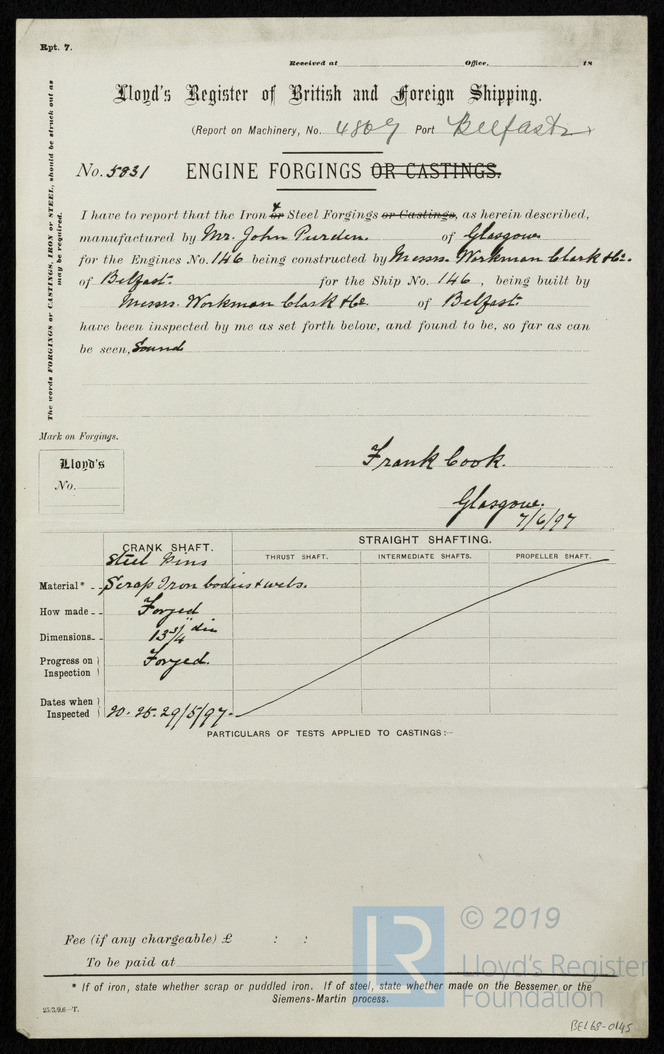 Rpt. 7.
Received at Office, 18
Lloyd's Register of British and Foreign Shipping.
(Report on Machinery, No. 4869 Port Belfast
No. 5831 ENGINE FORGINGS OR CASTINGS.
The words FORGINGS or CASTINGS, IRON or STEEL, should be struck out as may be required.
I have to report that the Iron or & Steel Forgings or Castings, as herein described,
manufactured by Mr. John Purden. of Glasgow
for the Engines No. 146 being constructed by Messrs. Workman Clark & Co.
of Belfast. for the Ship No. 146, being built by
Messrs. Workman Clark & Co. of Belfast.
have been inspected by me as set forth below, and found to be, so far as can
be seen, Sound
Mark on Forgings.
Lloyd's
No.
Frank Cook.
Glasgow.
7/6/97
CRANK SHAFT. STRAIGHT SHAFTING.
THRUST SHAFT. INTERMEDIATE SHAFTS. PROPELLER SHAFT.
Steel Pins
Material* Scrap Iron bodies & webs.
How made Forged
Dimensions 13 3/4" dia
Progress on Inspection Forged.
Dates when Inspected 20. 25. 29/5/97.
PARTICULARS OF TESTS APPLIED TO CASTINGS:—
Fee (if any chargeable) £ : :
To be paid at
* If of iron, state whether scrap or puddled iron. If of steel, state whether made on the Bessemer or the
Siemens-Martin process.
25/3/96—T.
LR
© 2019
Lloyd's Register
Foundation
BEL68-0145